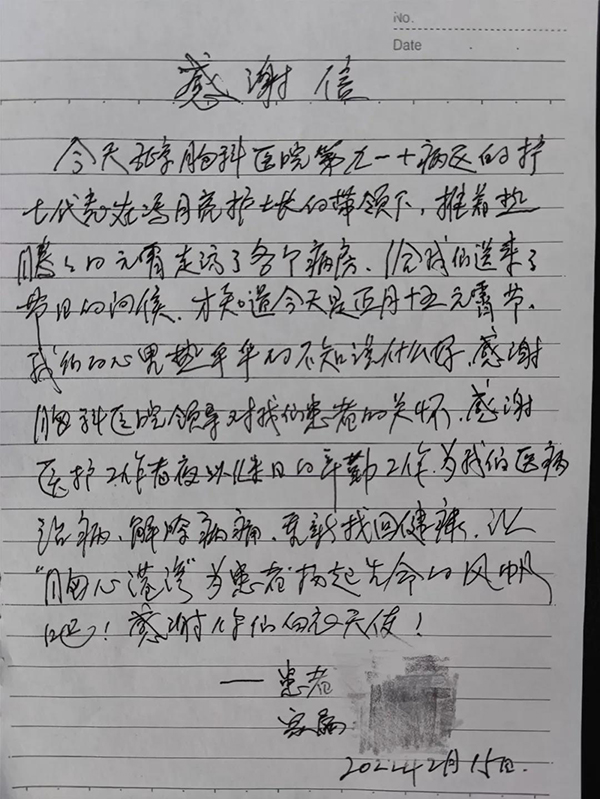 No.
Date
感谢信
今天北京胸科医院第九一十病区的护
士代表在冯月亮护士长的带领下,推着热
腾々的元宵走访了各个病房、给我们送来了
节日的问候、才知道今天是正月十五元霄节、
我们的心里热乎乎的不知说什么好、感谢
胸科医院领导对我们患者的关怀、感谢
医护工作者夜以继日的辛勤工作、为我们医病
治病、解除病痛、重新找回健康、让
“胸心港湾”为患者扬起生命的风帆
吧!感谢你们白衣天使!
——患者
家属
2022年2月15日.